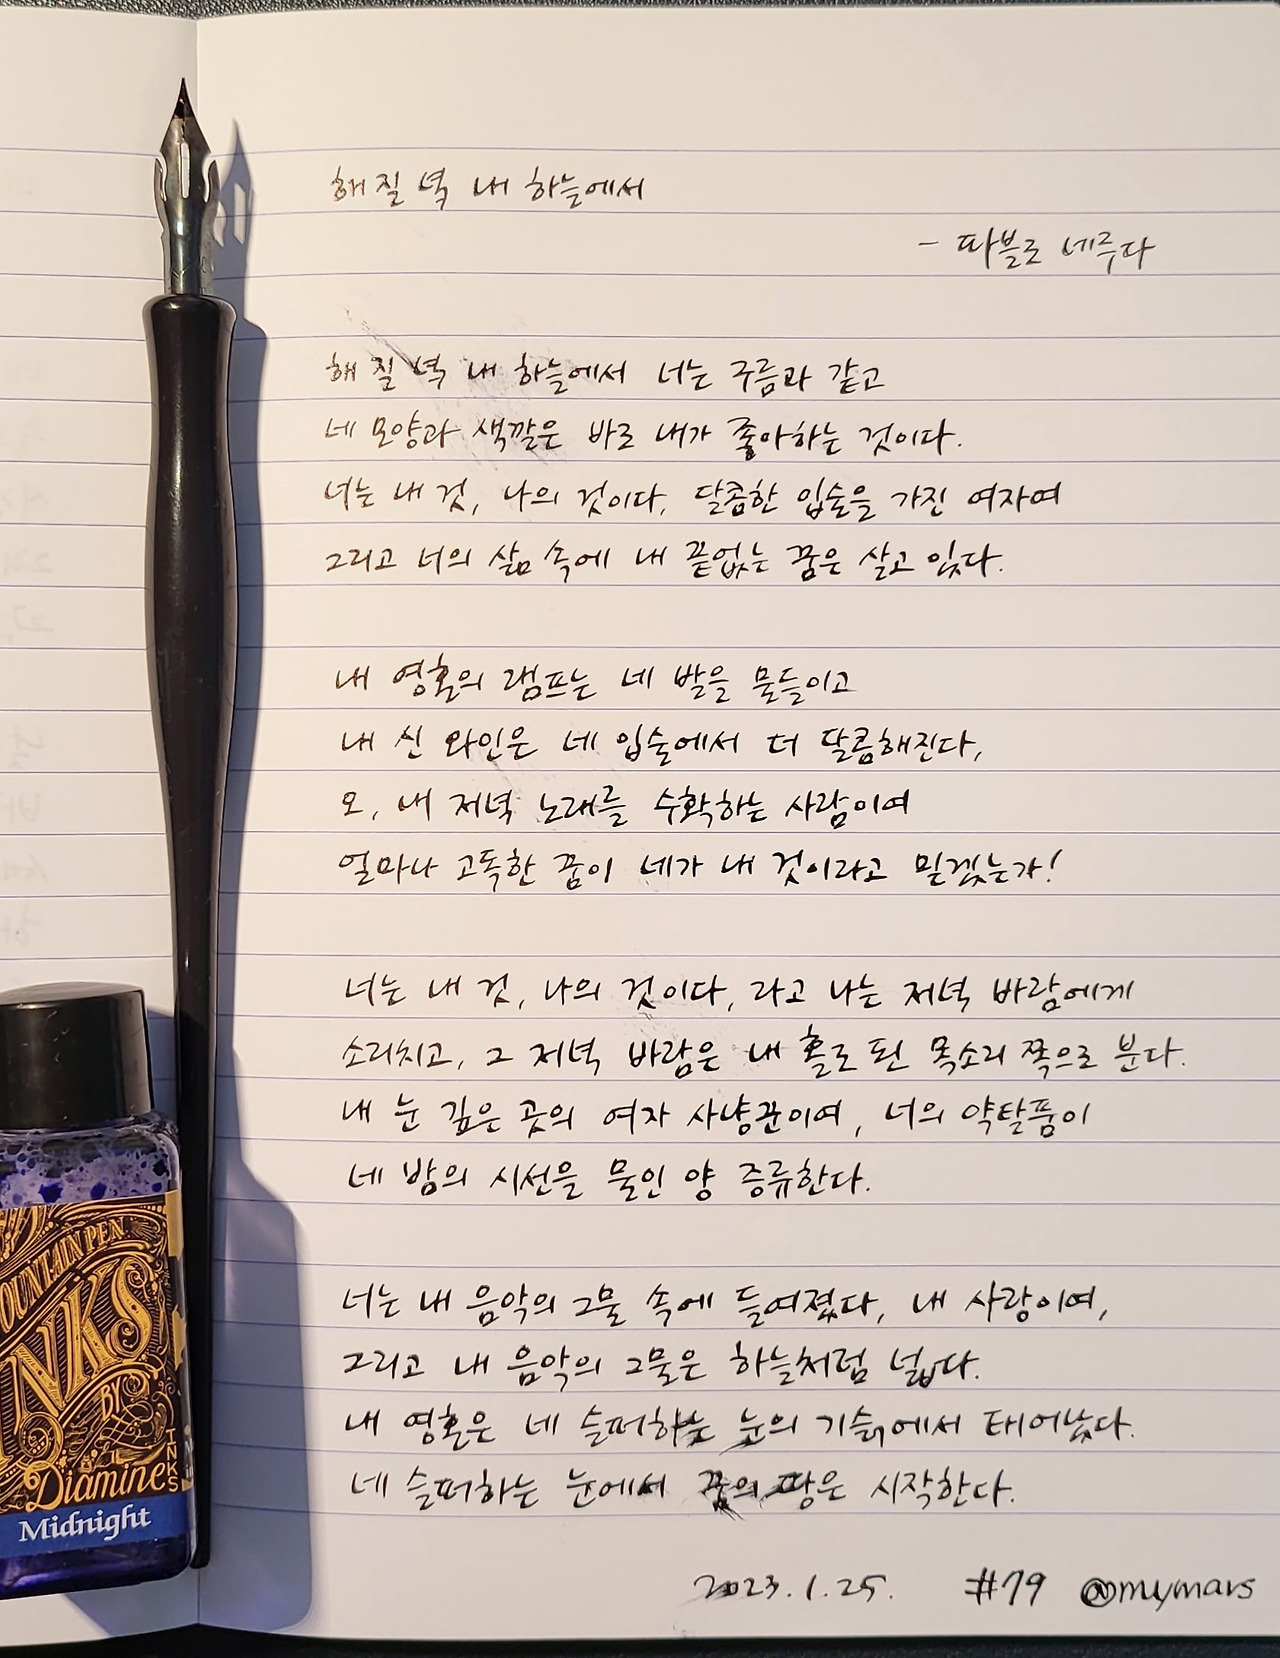 해질녘 내 하늘에서
- 파블로 네루다
해질녘 내 하늘에서 너는 구름과 같고
네 모양과 색깔은 바로 내가 좋아하는 것이다.
너는 내 것, 나의 것이다, 달콤한 입술을 가진 여자여
그리고 너의 삶 속에 내 끝없는 꿈은 살고 있다.
내 영혼의 램프는 네 발을 물들이고
내 신 와인은 네 입술에서 더 달콤해진다,
오, 내 저녁 노래를 수확하는 사람이여
얼마나 고독한 꿈이 네가 내 것이라고 믿겠는가!
너는 내 것, 나의 것이다, 라고 나는 저녁 바람에게
소리치고, 그 저녁 바람은 내 홀로 된 목소리 쪽으로 분다.
내 눈 깊은 곳의 여자 사냥꾼이여, 너의 약탈품이
네 밤의 시선을 물인 양 증류한다.
너는 내 음악의 그물 속에 들여졌다, 내 사랑이여,
그리고 내 음악의 그물은 하늘처럼 넓다.
내 영혼은 네 슬퍼하는 눈의 기슭에서 태어났다.
네 슬퍼하는 눈에서 꿈의 땅은 시작한다.
2023.1.25. #79 @mymars
FOUNTAIN PEN
INKS
BY
Diamine
INKS
Midnight